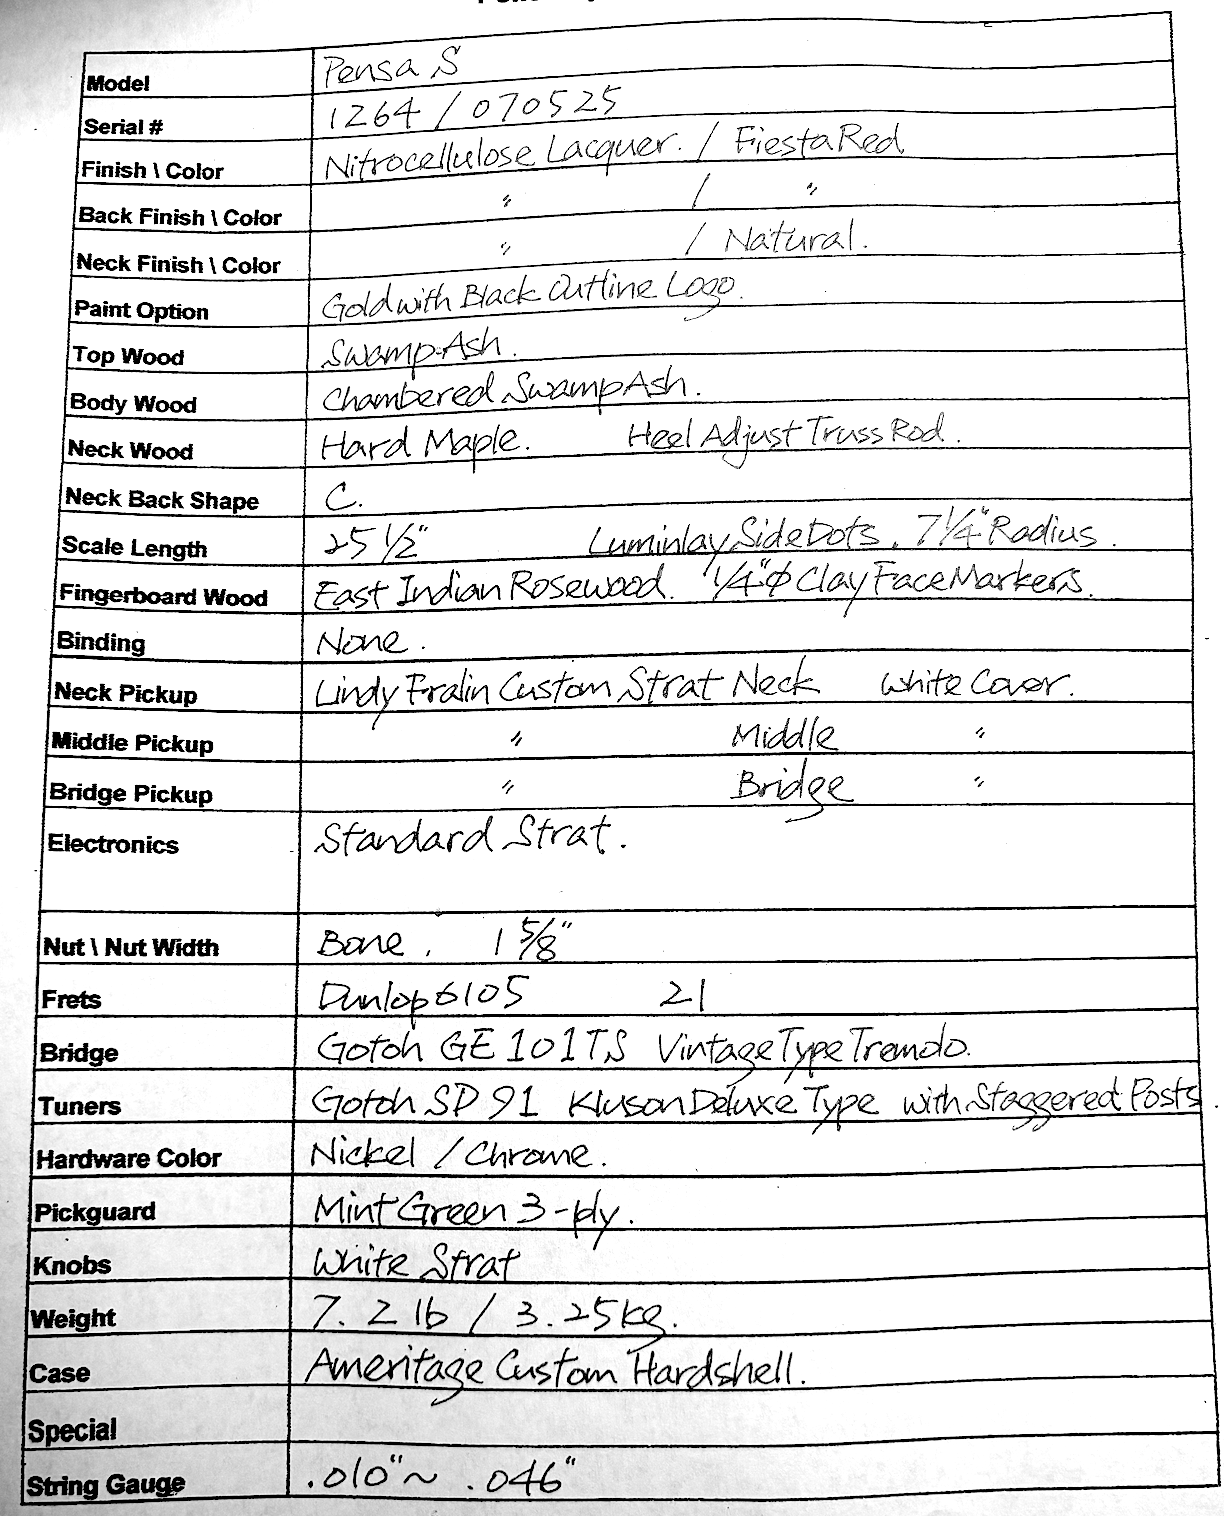 Model Pensa S
Serial # 1264 / 070525
Finish \ Color Nitrocellulose Lacquer. / Fiesta Red
Back Finish \ Color 〃 / 〃
Neck Finish \ Color 〃 / Natural.
Paint Option Gold with Black Outline Logo.
Top Wood Swamp Ash.
Body Wood Chambered Swamp Ash.
Neck Wood Hard Maple. Heel Adjust Truss Rod.
Neck Back Shape C.
Scale Length 25 1/2" Luminlay Side Dots, 7 1/4" Radius.
Fingerboard Wood East Indian Rosewood. 1/4"ϕ Clay Face Markers.
Binding None.
Neck Pickup Lindy Fralin Custom Strat Neck White Cover.
Middle Pickup 〃 Middle 〃
Bridge Pickup 〃 Bridge 〃
Electronics Standard Strat.
Nut \ Nut Width Bone. 1 5/8"
Frets Dunlop 6105 21
Bridge Gotoh GE101TS Vintage Type Tremolo.
Tuners Gotoh SD91 Kluson Deluxe Type with Staggered Posts.
Hardware Color Nickel / Chrome.
Pickguard Mint Green 3-ply.
Knobs White Strat
Weight 7.2 lb / 3.25kg.
Case Ameritage Custom Hardshell.
Special
String Gauge .010"~ .046"